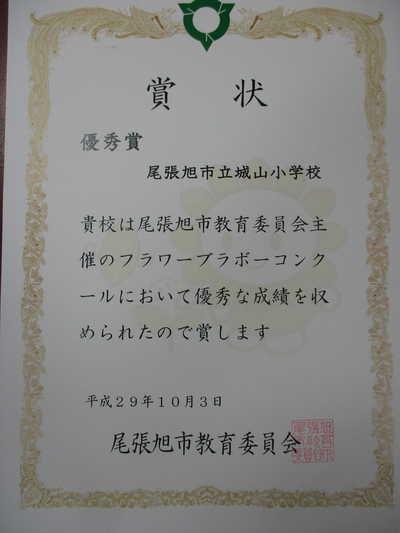 賞状
優秀賞
尾張旭市立城山小学校
貴校は尾張旭市教育委員会主
催のフラワーブラボーコンク
ールにおいて優秀な成績を収
められたので賞します
平成29年10月3日
尾張旭市教育委員会